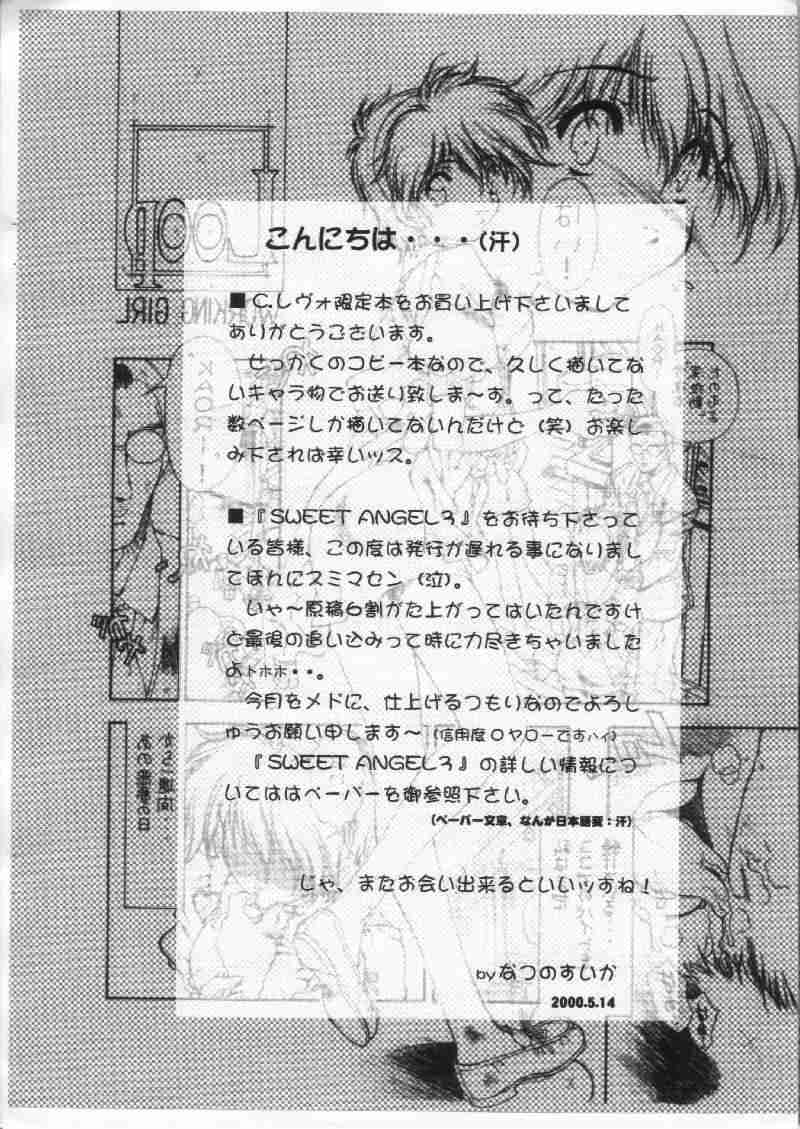 こんにちは・・・(汗)
■C.レヴォ限定本をお買い上げ下さいまして
ありがとうございます。
せっかくのコピー本なので、久しく描いてな
いキャラ物でお送り致しま～す。って、たった
数ページしか描いてないんだけど(笑)お楽し
み下されば幸いッス。
■『SWEET ANGEL3』をお待ち下さって
いる皆様、この度は発行が遅れる事になりまし
てほんにスミマセン(泣)。
いゃ～原稿6割がた上がってはいたんですけ
ど最後の追い込みって時に力尽きちゃいました
よトホホ・・。
今月をメドに、仕上げるつもりなのでよろし
ゅうお願い申します～(信用度0ヤローですハイ)
『SWEET ANGEL3』の詳しい情報につ
いてはは ペーパーを御参照下さい。
(ペーパー文章、なんか日本語変:汗)
じゃ、またお会い出来るといいッすね!
by なつのすいか
2000.5.14
はい!
WORKING GIRL
KAOR